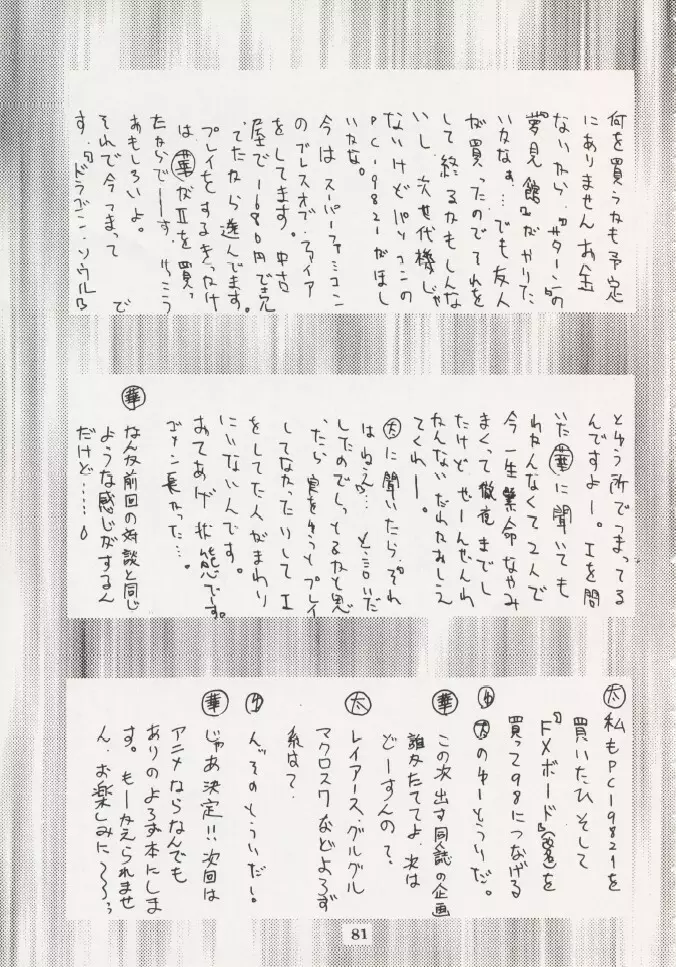 何を買うかも予定
にありません お金
ないから、『サターンの
夢見館』がやりた
いかなぁ…でも友人
が買ったのでそれを
して終るかもしんな
いし、次世代機じゃ
ないけどパソコンの
PC-9821がほし
いかな。
今はスーパーファミコン
のブレスオブ・ファイア
をしてます。中古
屋で1680円で売
ってたから遊んでます。
プレイをするきっかけ
は、華がIIを買っ
たからでーす。けっこう
おもしろいよ。
それで今つまって で
す。『ドラゴン・ソウル』
とゆう所でつまってる
んですよー。Iを問
いた華に聞いても
わかんなくて2人で
今一生懸命なやみ
まくって徹夜までし
たけど、ぜーんぜんわ
かんない だれかおしえ
てくれー。
太に聞いたら、それ
はねえ…と言いだ
したのでしってるかと思
ったら実をゆうとプレイ
してなかったりして I
をしてた人がまわり
にいないんです。
おてあげ状態でーす。
ゴメン長かった…。
華 なんか前回の対談と同じ
ような感じがするん
だけど……
太 私もPC-9821を
買いたひ そして
『FXボード』を
買って98につなげる
ゆ 太のゆーとうりだ。
華 この次出す同人誌の企画
誰かたててよ、次は
どーすんの?
太 レイアース、グルグル
マクロスクなどよろず
系はて、
ゆ んそのとうりだー。
華 じゃあ決定!!次回は
アニメならなんでも
ありのよろず本にしま
す。もーかえられませ
ん、お楽しみに〜〜
81